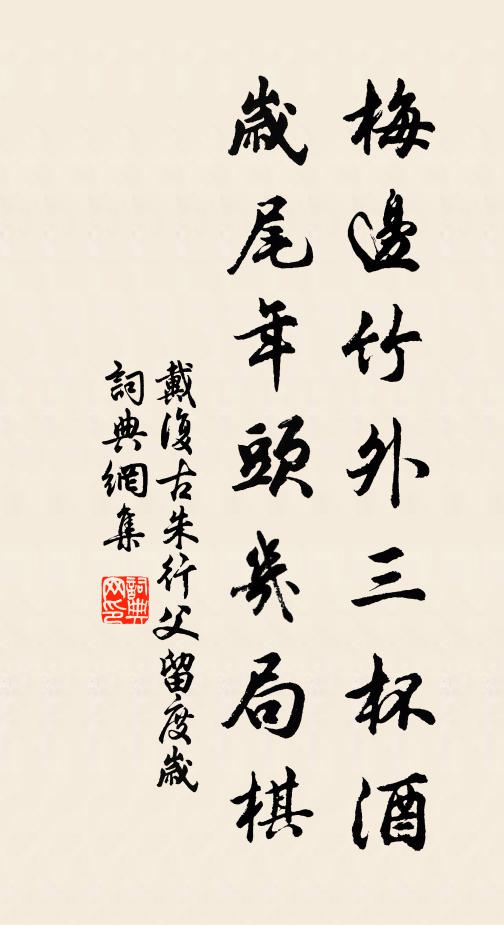 梅邊竹外三杯酒
歲尾年頭幾局棋
戴復古朱行父留度歲
詞典網集
詞典
网印